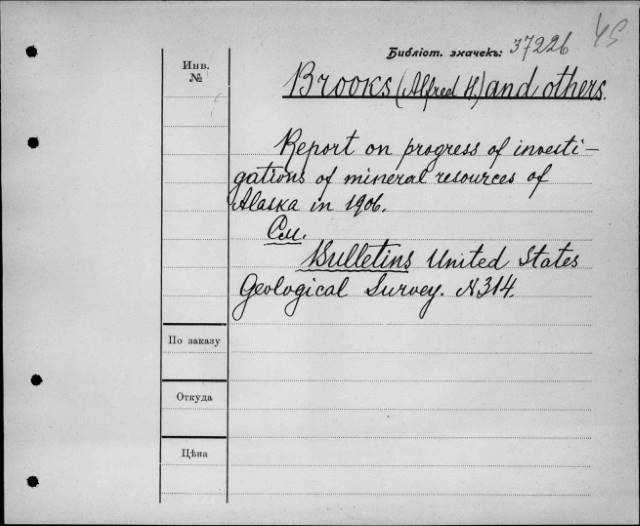 Библіот. значекъ: 37226 45
Инв. №
Brooks (Alfred H.) and others.
Report on progress of investi-
gations of mineral resources of
Alaska in 1906.
См.
Bulletins United States
Geological Survey. N314.
По заказу
Откуда
Цѣна